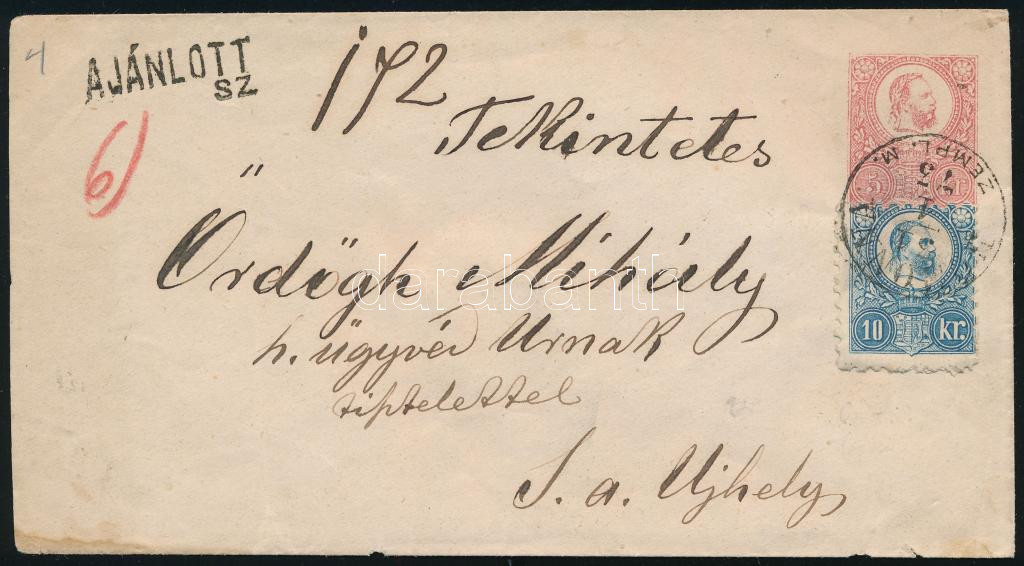 4
AJÁNLOTT
SZ
172
6)
Tekintetes
"
Ördögh Mihály
h. ügyvéd Urnak
tisztelettel
S. a. Ujhely
5
ZEMPL. M.
10 kr.
darabanth